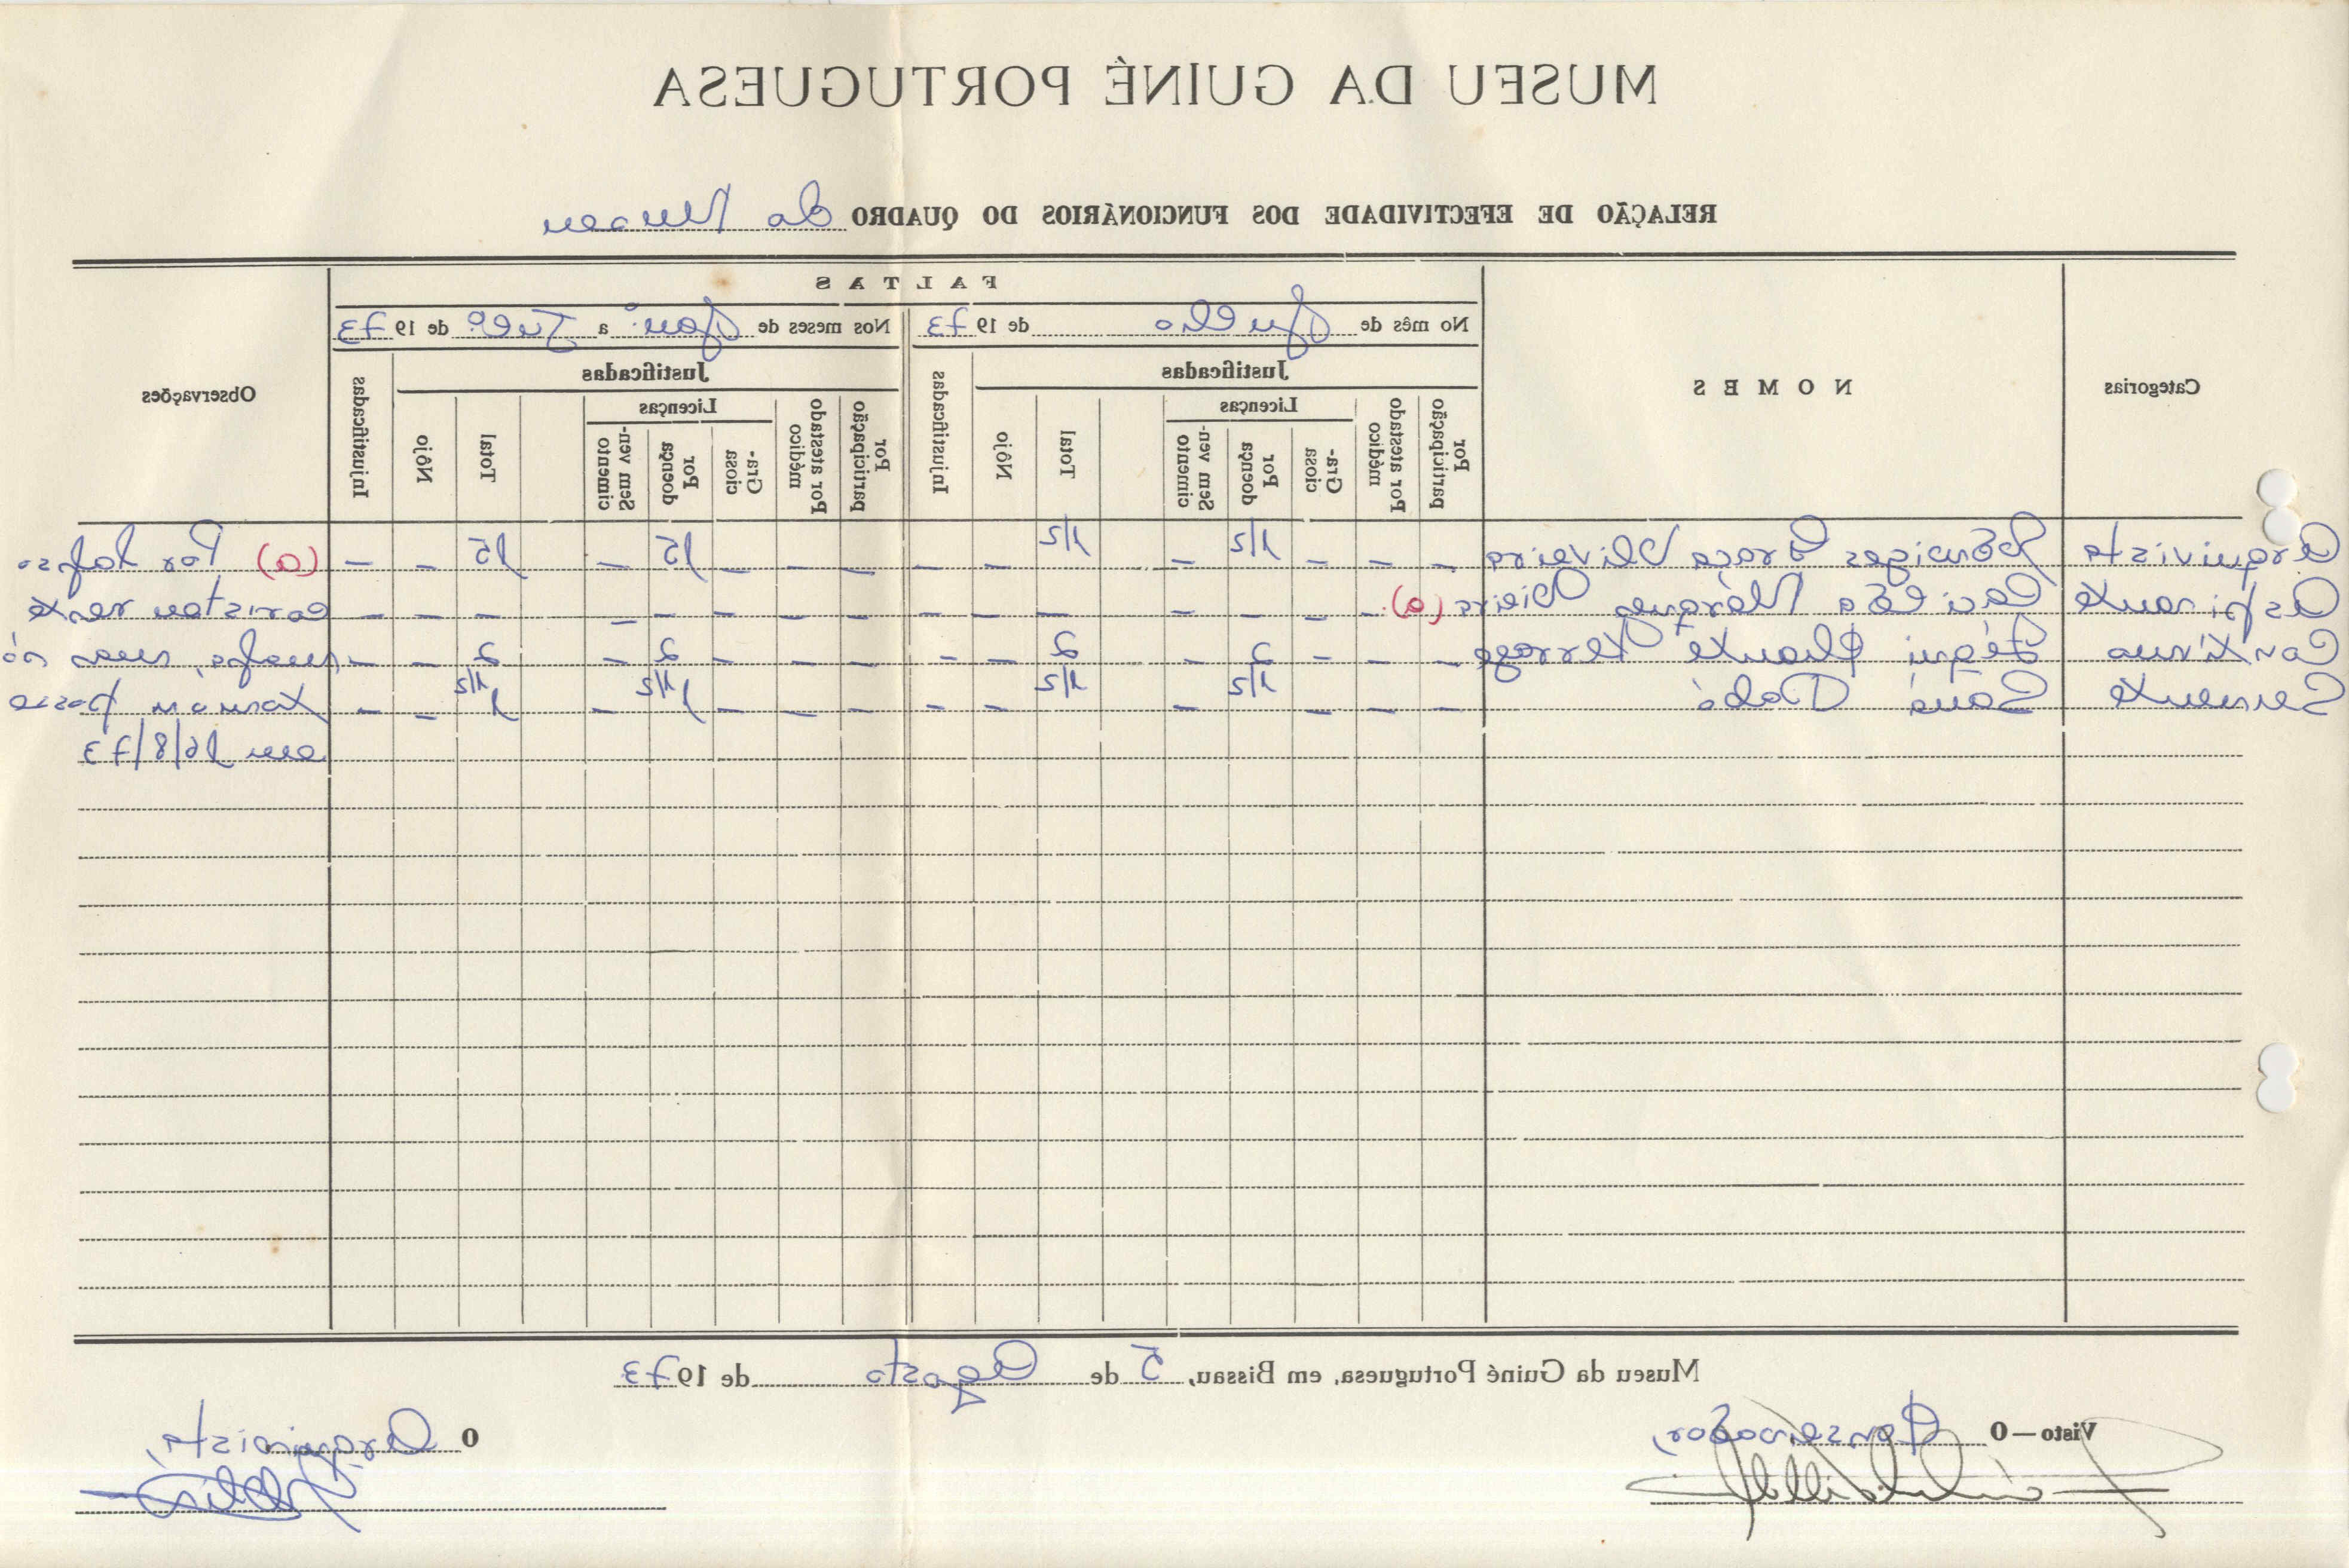 MUSEU DA GUINÉ PORTUGUESA
RELAÇÃO DE EFECTIVIDADE DOS FUNCIONÁRIOS DO QUADRO do Museu
Categorias
NOMES
FALTAS
No mês de Julho de 1973
Nos meses de Jan.º a Julº de 1973
Justificadas
Justificadas
Licenças
Licenças
Por participação
Por atestado médico
Gra-ciosa
Por doença
Sem ven-cimento
Total
Nôjo
Injustificadas
Por participação
Por atestado médico
Gra-ciosa
Por doença
Sem ven-cimento
Total
Nôjo
Injustificadas
Observações
Arquivista Graça Oliveira — — — 1/2 — 1/2 — — — — — 15 — 15 — — (a) Por
Aspirante Vieira (a) — — — — — — — — — — — — — — —
Contínua — — — 2 — 2 — — — — — 2 — 2 — — mas só
Servente Saná — — — 1/2 — 1/2 — — — — — 1 1/2 — 1 1/2 — — tomou posse
em 16/8/73
Museu da Guiné Portuguesa, em Bissau, 5 de Agosto de 1973
Visto — O Conservador,
O Arquivista,